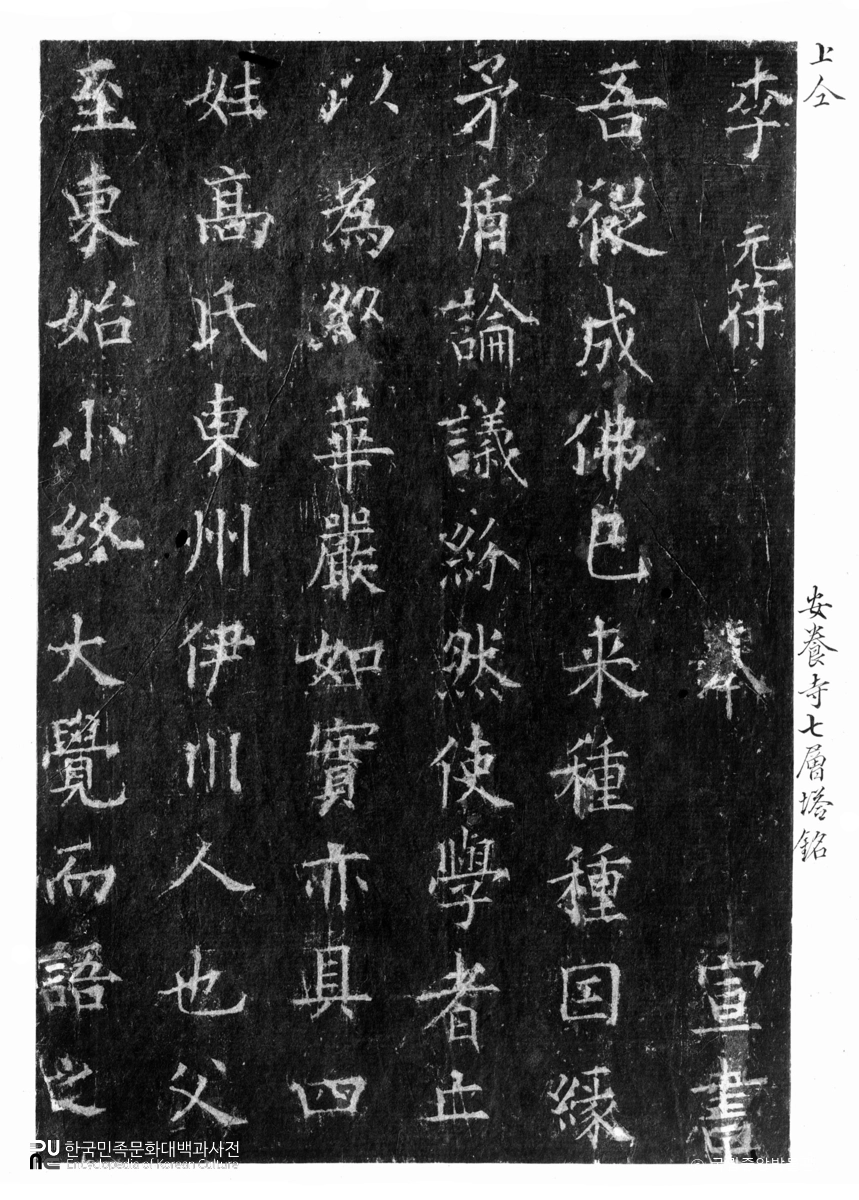 上仝
安養寺七層塔銘
李 元符 奉 宣書
吾從成佛已来種種因緣
矛盾論議紛然使學者
以為 華嚴如實亦具四
姓高氏東州伊川人也父
至東始小終大覺而語之
한국민족문화대백과사전
Encyclopedia of Korean Culture